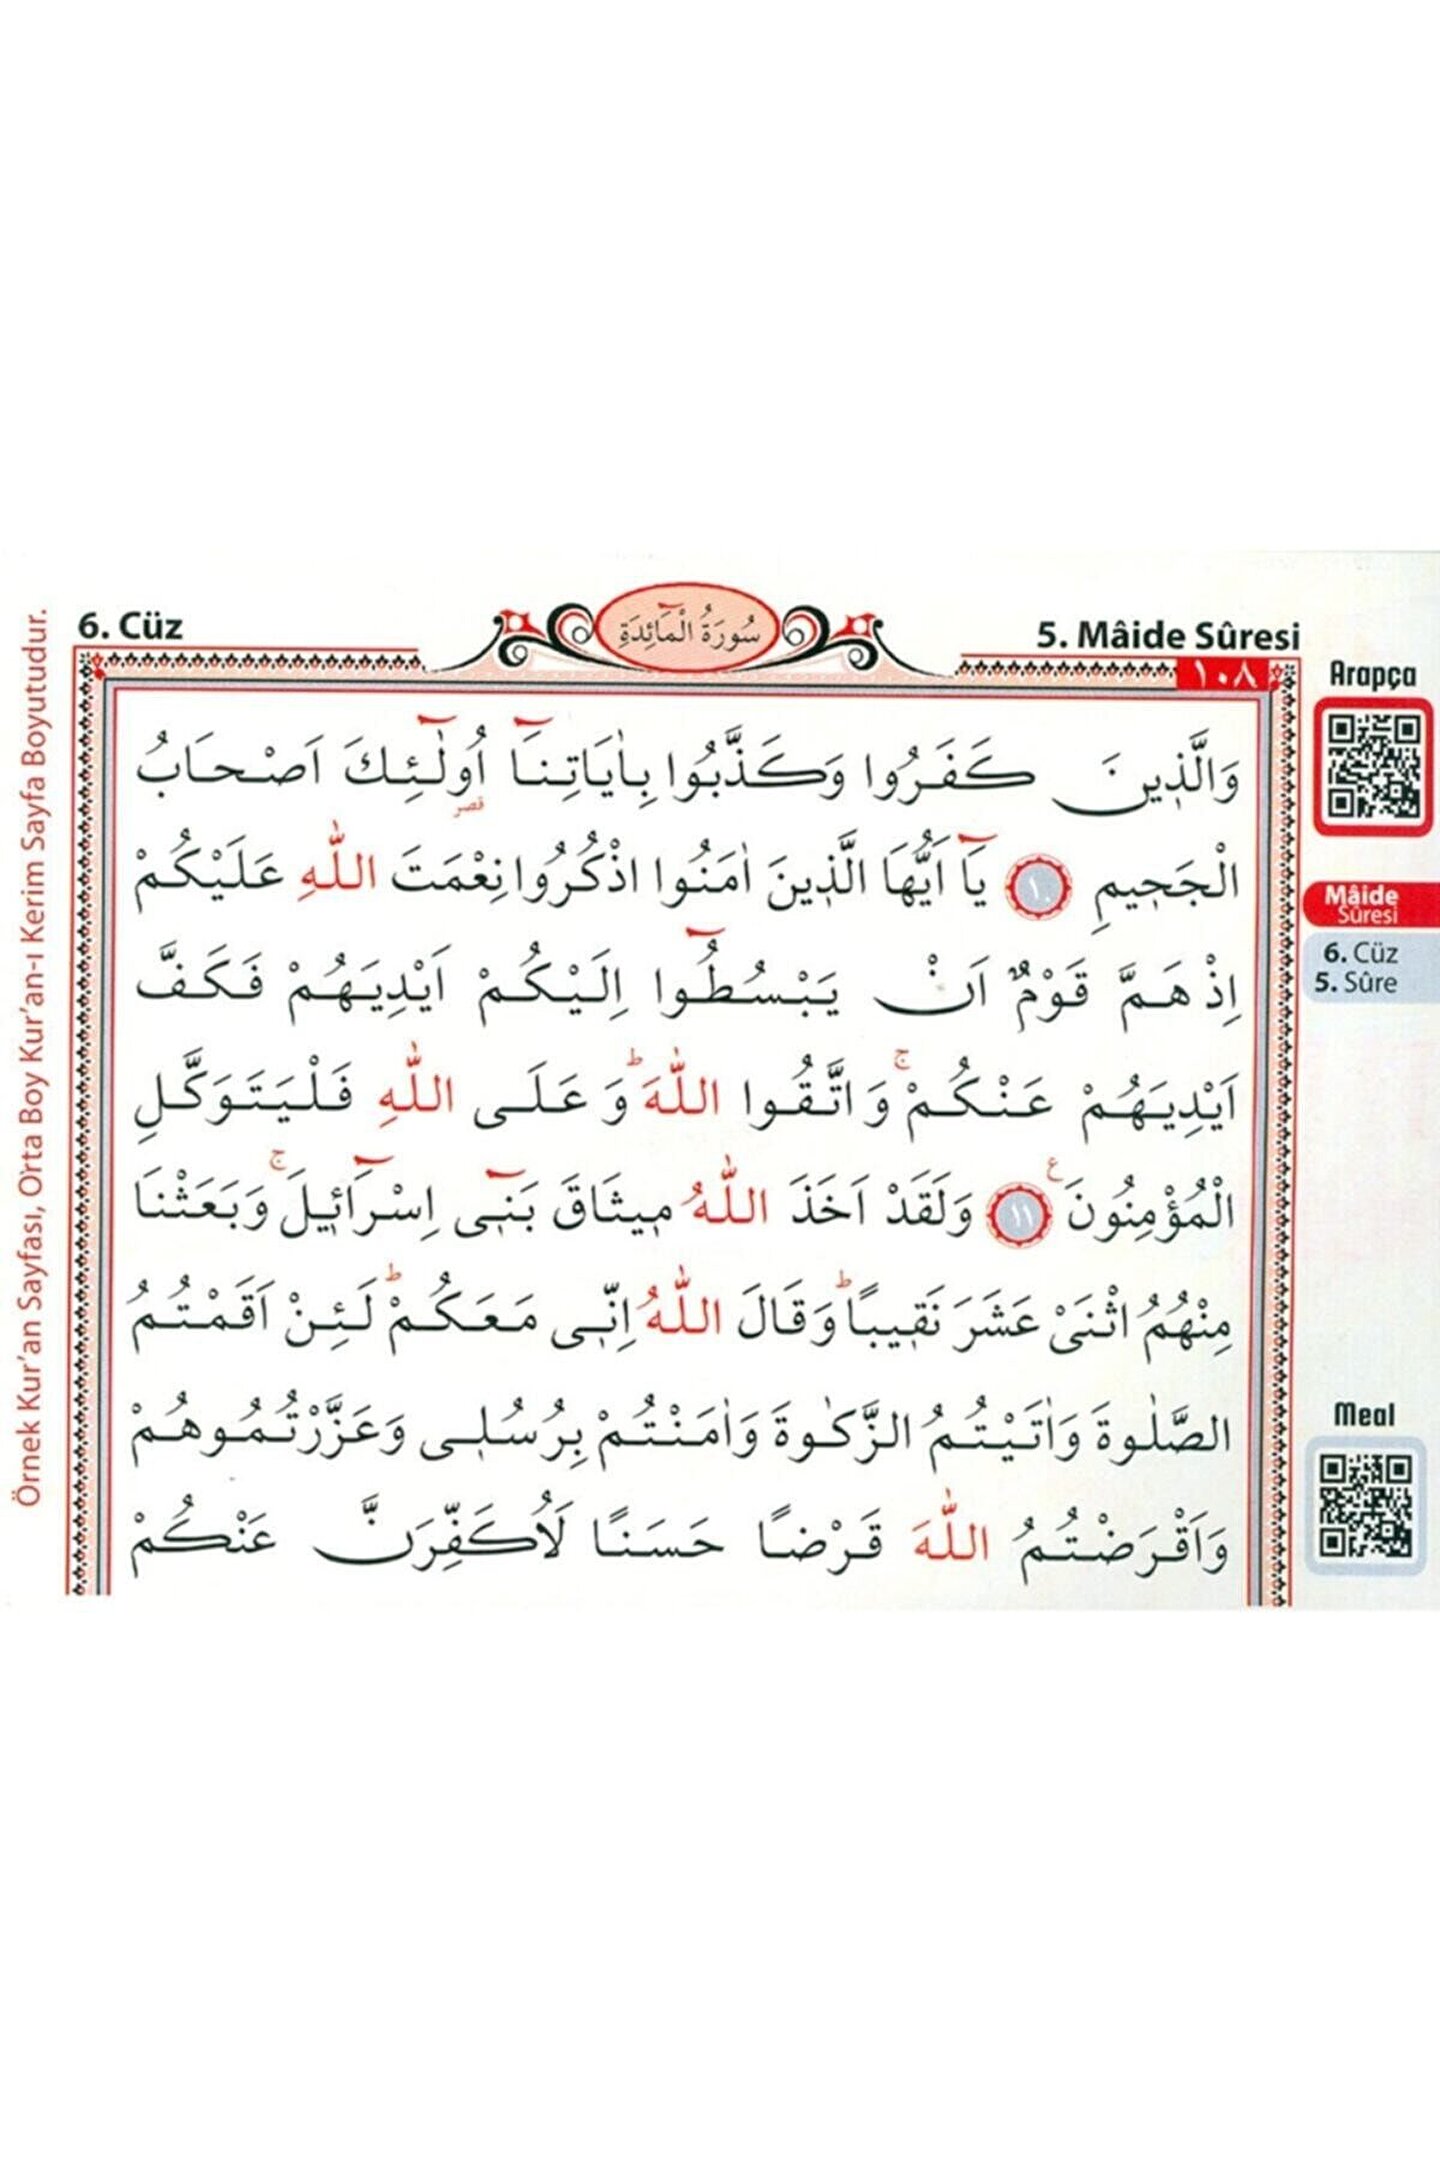 6. Cüz
سُورَةُ الْمَٓائِدَةِ
5. Mâide Sûresi
١٠٨
وَالَّذ۪ينَ كَفَرُوا وَكَذَّبُوا بِاٰيَاتِنَٓا اُو۬لٰٓئِكَ اَصْحَابُ
قصر
الْجَح۪يمِ ١٠ يَٓا اَيُّهَا الَّذ۪ينَ اٰمَنُوا اذْكُرُوا نِعْمَتَ اللّٰهِ عَلَيْكُمْ
اِذْ هَمَّ قَوْمٌ اَنْ يَبْسُطُٓوا اِلَيْكُمْ اَيْدِيَهُمْ فَكَفَّ
اَيْدِيَهُمْ عَنْكُمْۚ وَاتَّقُوا اللّٰهَؕ وَعَلَى اللّٰهِ فَلْيَتَوَكَّلِ
الْمُؤْمِنُونَ۟ ع ١١ وَلَقَدْ اَخَذَ اللّٰهُ م۪يثَاقَ بَن۪ٓي اِسْرَٓائ۪يلَۚ وَبَعَثْنَا
مِنْهُمُ اثْنَيْ عَشَرَ نَق۪يبًاؕ وَقَالَ اللّٰهُ اِنّ۪ي مَعَكُمْؕ لَئِنْ اَقَمْتُمُ
الصَّلٰوةَ وَاٰتَيْتُمُ الزَّكٰوةَ وَاٰمَنْتُمْ بِرُسُل۪ي وَعَزَّرْتُمُوهُمْ
وَاَقْرَضْتُمُ اللّٰهَ قَرْضًا حَسَنًا لَاُكَفِّرَنَّ عَنْكُمْ
Arapça
Mâide
Sûresi
6. Cüz
5. Sûre
Meal
Örnek Kur'an Sayfası, Orta Boy Kur'an-ı Kerim Sayfa Boyutudur.